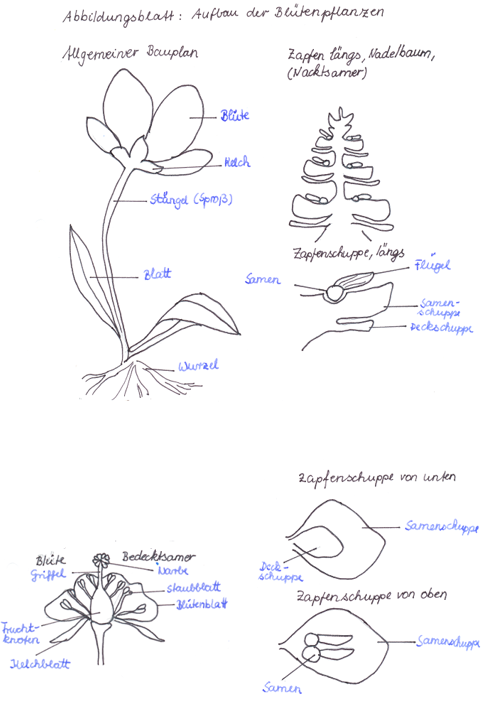 Abbildungsblatt: Aufbau der Blütenpflanzen
Allgemeiner Bauplan
Blüte
Kelch
Stängel (Sproß)
Blatt
Wurzel
Zapfen längs, Nadelbaum,
(Nacktsamer)
Zapfenschuppe, längs
Flügel
Samen
Samen-
schuppe
Deckschuppe
Zapfenschuppe von unten
Samenschuppe
Deck-
schuppe
Zapfenschuppe von oben
Samenschuppe
Samen
Blüte Bedecktsamer
Griffel
Narbe
Staubblatt
Blütenblatt
Frucht-
knoten
Kelchblatt